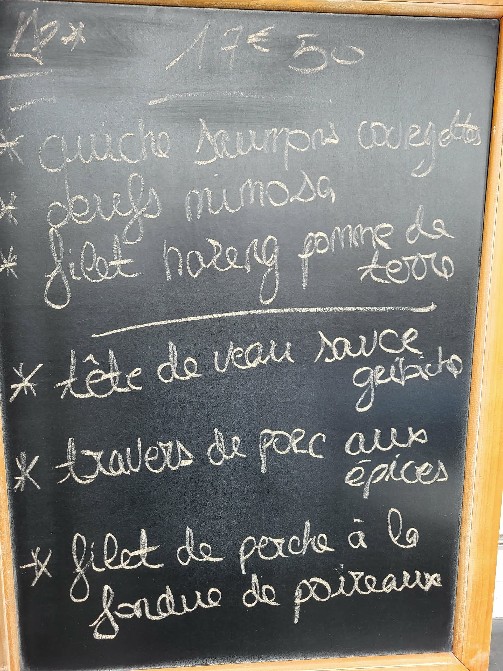 17€50
* quiche saumons courgettes
* oeufs mimosa
* filet hareng pomme de
terre
* tête de veau sauce
gribiche
* travers de porc aux
épices
* filet de perche à la
fondue de poireaux